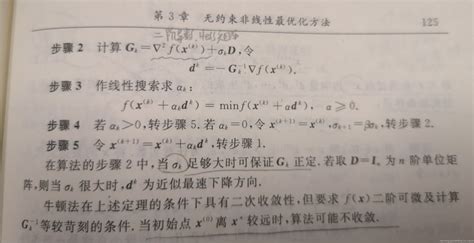 第 3 章 无约束非线性最优化方法 125
步骤 2 计算 Gₖ=∇²f(x⁽ᵏ⁾)+σₖD,令
dᵏ=-Gₖ⁻¹∇f(x⁽ᵏ⁾).
步骤 3 作线性搜索求 αₖ:
f(x⁽ᵏ⁾+αₖdᵏ)=minf(x⁽ᵏ⁾+αdᵏ), α≥0.
步骤 4 若 αₖ>0,转步骤 5.若 αₖ=0,令 x⁽ᵏ⁺¹⁾=x⁽ᵏ⁾,σₖ₊₁=3σₖ,转步骤 2.
步骤 5 令 x⁽ᵏ⁺¹⁾=x⁽ᵏ⁾+αₖdᵏ,转步骤 1.
在算法的步骤 2 中,当 σₖ 足够大时可保证 Gₖ 正定.若取 D=Iₙ 为 n 阶单位矩
阵,则当 σₖ 很大时,dᵏ 为近似最速下降方向.
牛顿法在上述定理的条件下具有二次收敛性,但要求 f(x)二阶可微及计算
Gₖ⁻¹等较苛刻的条件.当初始点 x⁽⁰⁾ 离 x* 较远时,算法可能不收敛.